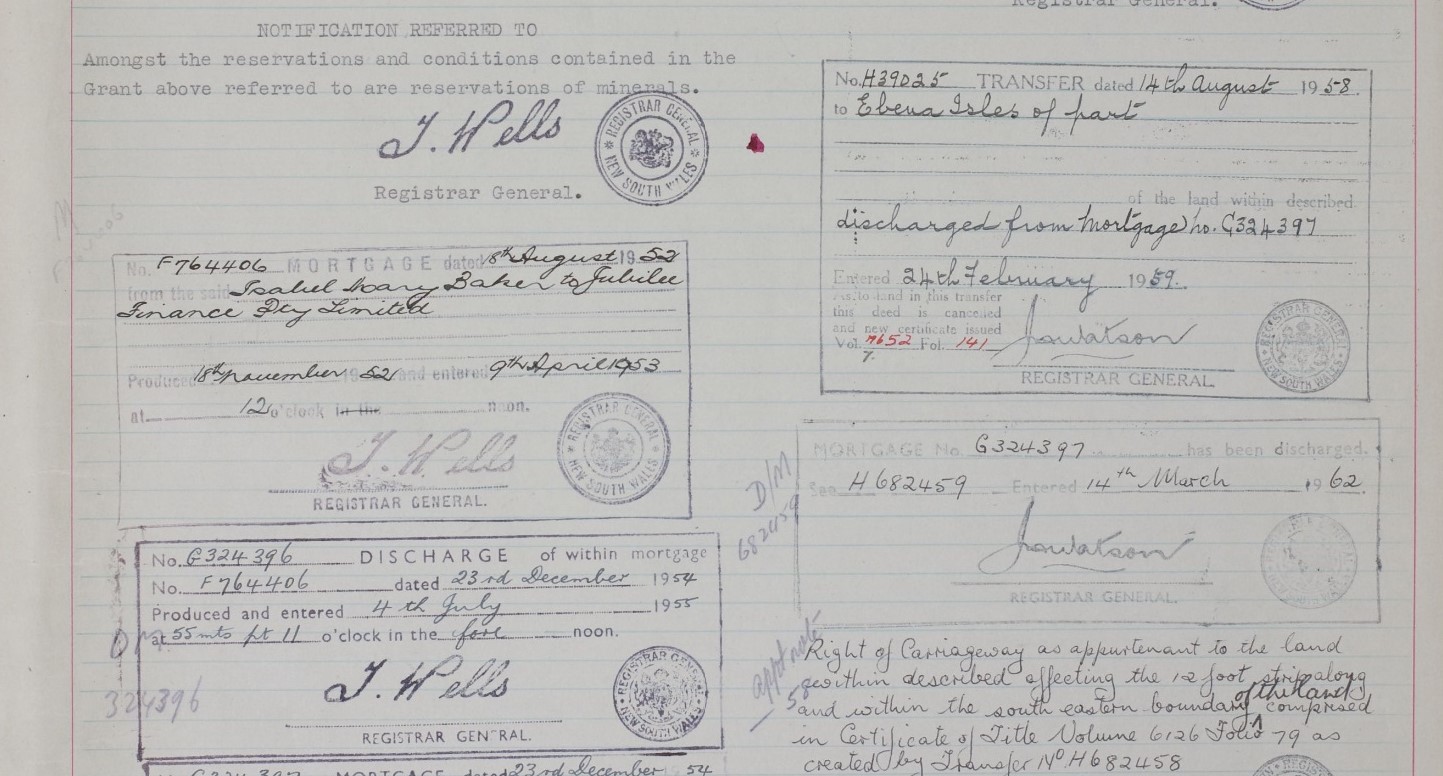 Registrar General.
NOTIFICATION REFERRED TO
Amongst the reservations and conditions contained in the
Grant above referred to are reservations of minerals.
J. Wells
REGISTRAR GENERAL
NEW SOUTH WALES
Registrar General.
No. F764406 MORTGAGE dated 18th August 1952
from the said Isabel Mary Baker to Jubilee
Finance Pty Limited
Produced 18th November 1952 and entered 9th April 1953
at 12 o'clock in the noon.
J. Wells
REGISTRAR GENERAL.
REGISTRAR GENERAL
NEW SOUTH WALES
No. G324396 DISCHARGE of within mortgage
No. F764406 dated 23rd December 1954
Produced and entered 4th July 1955
at 55 mts pt 11 o'clock in the fore noon.
J. Wells
REGISTRAR GENERAL.
REGISTRAR GENERAL
NEW SOUTH WALES
324396
No. G324397 MORTGAGE dated 23rd December 54
No. H39025 TRANSFER dated 14th August 1958
to Ebena Isles of part
of the land within described
discharged from Mortgage no. G324397
Entered 24th February 1959.
As to land in this transfer
this deed is cancelled
and new certificate issued
Vol. 7652 Fol. 141
7.
Jawatson
REGISTRAR GENERAL
REGISTRAR GENERAL
NEW SOUTH WALES
MORTGAGE No. G324397 has been discharged.
See H682459 Entered 14th March 1962
Jawatson
REGISTRAR GENERAL.
D/M
682459
appt note
58
Right of Carriageway as appurtenant to the land
within described affecting the 12 foot strip along
and within the south eastern boundary of the land comprised
in Certificate of Title Volume 6126 Folio 79 as
created by Transfer No H682458